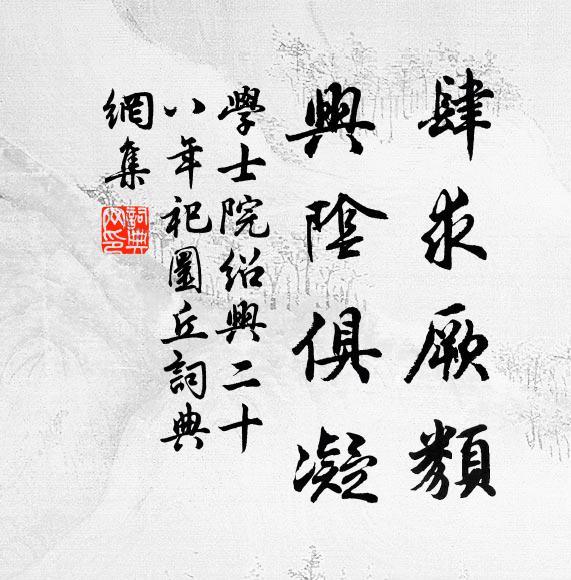 肆求厥類
興陰俱凝
學士院紹興二十
八年祀圜丘詞典
網集
詞典
网印